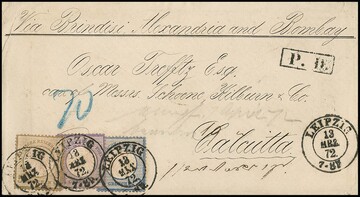 Via Brindisi Alexandria and Bombay
P. D.
Oscar Trefftz Esq.
care Messrs Schoene, Kilburn & Co.
70
Calcutta
LEIPZIG
13
MRZ.
72
LEIPZIG
13
MRZ
72
LEIPZIG
13
72
LEIPZIG
13
72